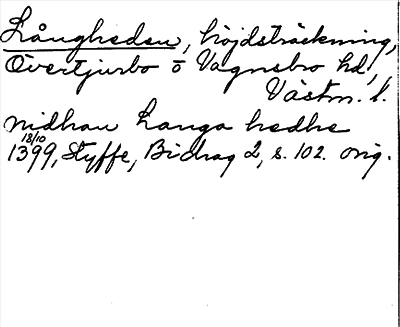 Långheden, höjdsträckning,
Övertjurbo o Vagnsbro hd,
Västm. l.
nidhan Langa hedhe
18/10
1399, Styffe, Bidrag 2, s. 102. orig.